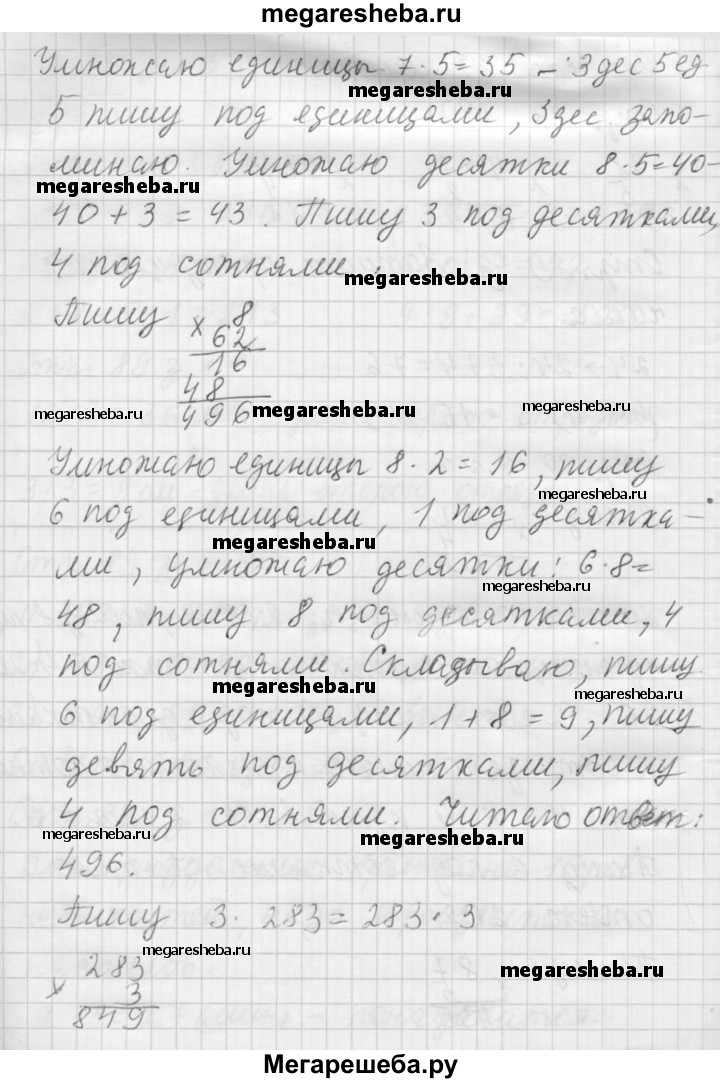 megaresheba.ru
Умножаю единицы 7·5=35 – 3 дес 5 ед
megaresheba.ru
5 пишу под единицами, 3 дес. запо-
минаю. Умножаю десятки 8·5=40-
megaresheba.ru
40 + 3 = 43. Пишу 3 под десятками,
4 под сотнями.
megaresheba.ru
Пишу
× 8
62
16
48
496
megaresheba.ru
megaresheba.ru
megaresheba.ru
Умножаю единицы 8·2=16, пишу
megaresheba.ru
6 под единицами, 1 под десятка-
megaresheba.ru
ми, умножаю десятки: 6·8=
megaresheba.ru
48, пишу 8 под десятками, 4
под сотнями. Складываю, пишу
megaresheba.ru
megaresheba.ru
6 под единицами, 1+8=9, пишу
девять под десятками, пишу
4 под сотнями. Читаю ответ:
megaresheba.ru
megaresheba.ru
496.
Пишу 3·283=283·3
megaresheba.ru
megaresheba.ru
283
× 3
849
Мегарешеба.ру